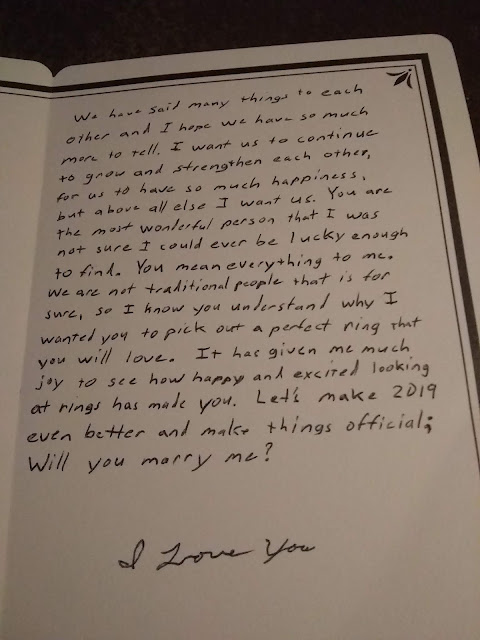 We have said many things to each
other and I hope we have so much
more to tell. I want us to continue
to grow and strengthen each other,
for us to have so much happiness,
but above all else I want us. You are
the most wonderful person that I was
not sure I could ever be lucky enough
to find. You mean everything to me.
We are not traditional people that is for
sure, so I know you understand why I
wanted you to pick out a perfect ring that
you will love. It has given me much
joy to see how happy and excited looking
at rings has made you. Let's make 2019
even better and make things official;
Will you marry me?
I Love You